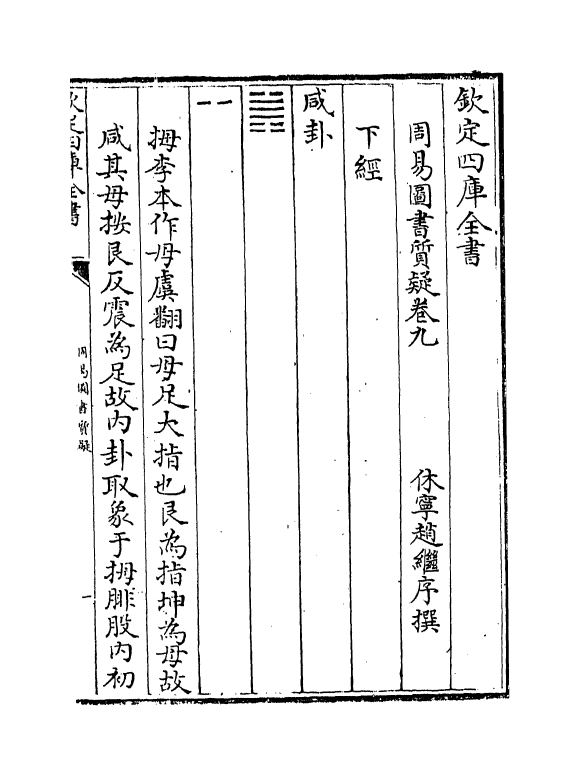 欽定四庫全書
周易圖書質疑卷九 休寧趙繼序撰
下經
咸卦
䷞
⚋
拇李本作母虞翻曰母足大指也艮為指坤為母故
咸其母按艮反震為足故内卦取象于拇腓股内初
欽定四庫全書
周易圖書質疑
一